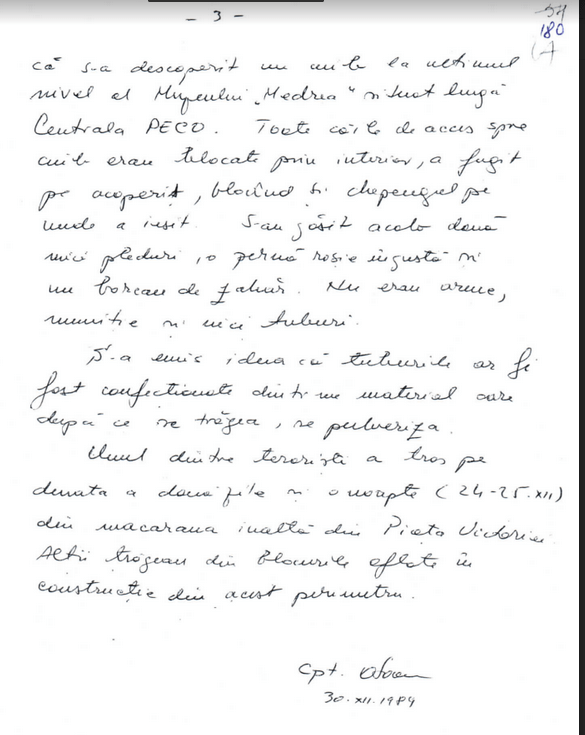 - 3 -
180
că s-a descoperit un cuib la ultimul
nivel al Muzeului „Medrea” situat lângă
Centrala PECO. Toate căile de acces spre
cuib erau blocate prin interior, a fugit
pe acoperiș, blocînd și chepengul pe
unde a ieșit. S-au găsit acolo două
mici pleduri, o pernă roșie îngustă și
un borcan de zahăr. Nu erau arme,
muniție și nici tuburi.
S-a emis ideea că tuburile ar fi
fost confecționate dintr-un material care
după ce se trăgea, se pulveriza.
Unul dintre teroriști a tras pe
durata a două zile și o noapte (24-25.XII)
din macaraua înaltă din Piața Victoriei
Alții trăgeau din blocurile aflate în
construcție din acest perimetru.
Cpt.
30.XII.1989